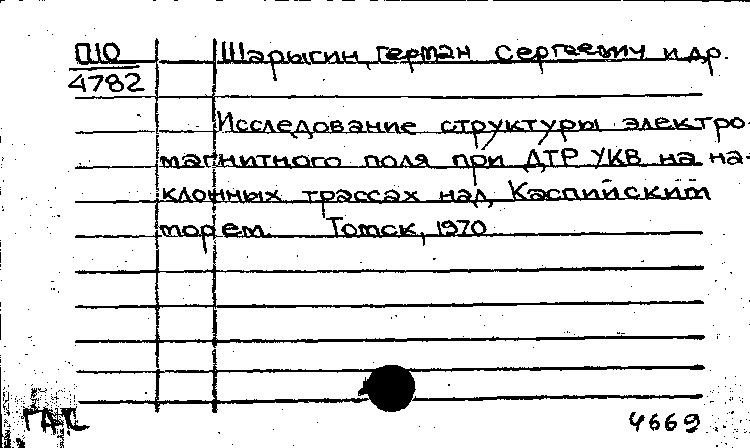 П10 Шарыгин, Герман Сергеевич и др.
4782
Исследование структуры электро-
магнитного поля при ДТР УКВ на на-
клонных трассах над Каспийским
морем. Томск, 1970
4669